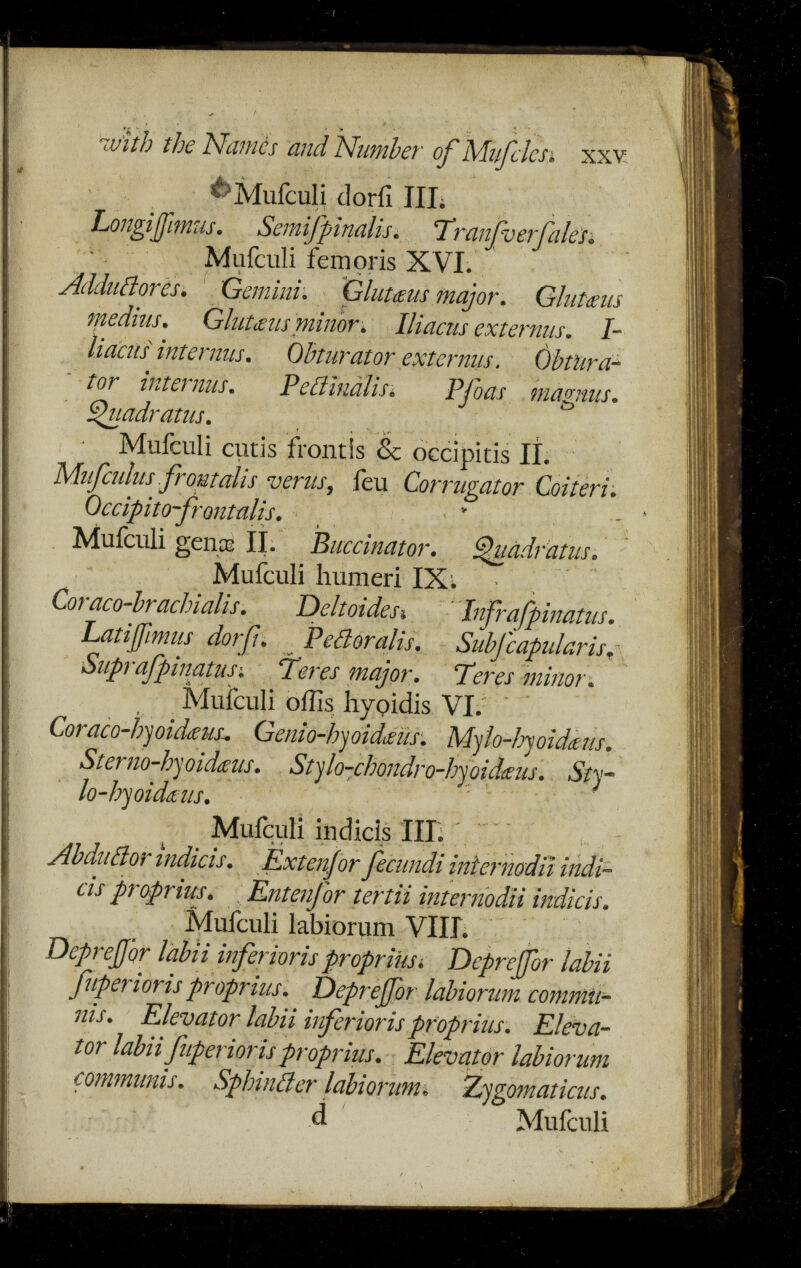 with the Names and Number of Muſcles. xxv
Muſculi dorſi III.
Longiſſimus. Semiſpinalis. Tranſverſales.
Muſculi femoris XVI.
Adductores. Gemini. Glutæus major. Glutæus
medius. Glutæus minor. Iliacus externus. I-
liacus internus. Obturator externus. Obtura-
tor internus. Pectinalis. Pſoas magnus.
Quadratus.
Muſculi cutis frontis & occipitis II.
Muſculus frontalis verus, ſeu Corrugator Coiteri.
Occipito-frontalis.
Muſculi genæ II. Buccinator. Quadratus.
Muſculi humeri IX.
Coraco-brachialis. Deltoides. Infraſpinatus.
Latiſſimus dorſi. Pectoralis. Subſcapularis.
Supraſpinatus. Teres major. Teres minor.
Muſculi oſſis hyoidis VI.
Coraco-hyoidæus. Genio-hyoidæus. Mylo-hyoidæus.
Sterno-hyoidæus. Stylo-chondro-hyoidæus. Sty-
lo-hyoidæus.
Muſculi indicis III.
Abductor indicis. Extenſor ſecundi internodii indi-
cis proprius. Entenſor tertii internodii indicis.
Muſculi labiorum VIII.
Depreſſor labii inferioris proprius. Depreſſor labii
ſuperioris proprius. Depreſſor labiorum commu-
nis. Elevator labii inferioris proprius. Eleva-
tor labii ſuperioris proprius. Elevator labiorum
communis. Sphincter labiorum. Zygomaticus.
d Muſculi